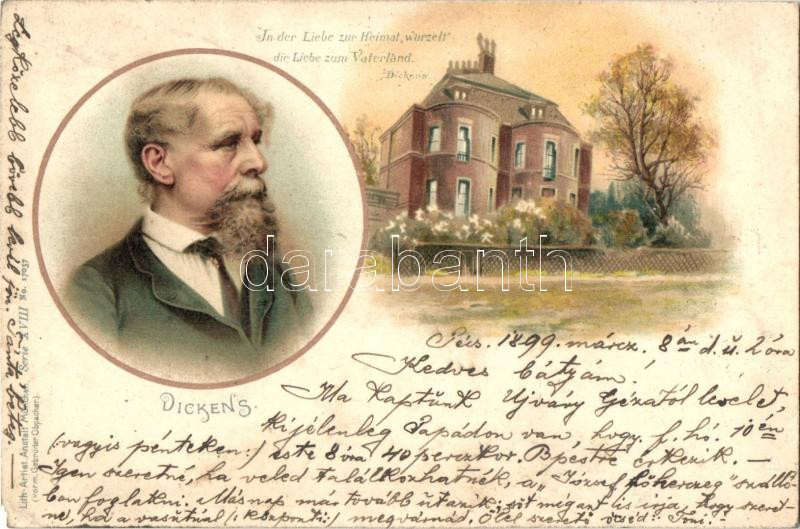 In der Liebe zur Heimat, wurzelt
die Liebe zum Vaterland.
Dickens
DICKENS.
darabanth
Lith.-Artist. Anstalt München
(vorm. Gebrüder Obpacher).
Serie XVIII No. 17037
Pécs. 1899. márcz. 8án d. u. 2 óra
Kedves bátyám!
Ma kaptunk Ujváry Gézától levelet
kijelenleg Pápádon van, hogy f. hó. 10én
(vagyis pénteken:) este 8 óra 40 perczkor Bpestre érkezik. —
Igen szeretné, ha veled találkozhatnék, a „József főherczeg" szálló
ban fog lakni. Másnap már tovább útazik; sőt mégant is irja, hogy szeret
né, ha a vasútnál (: központi :) megvárnád. Ölel szerető öcséd
Legközelebb többet